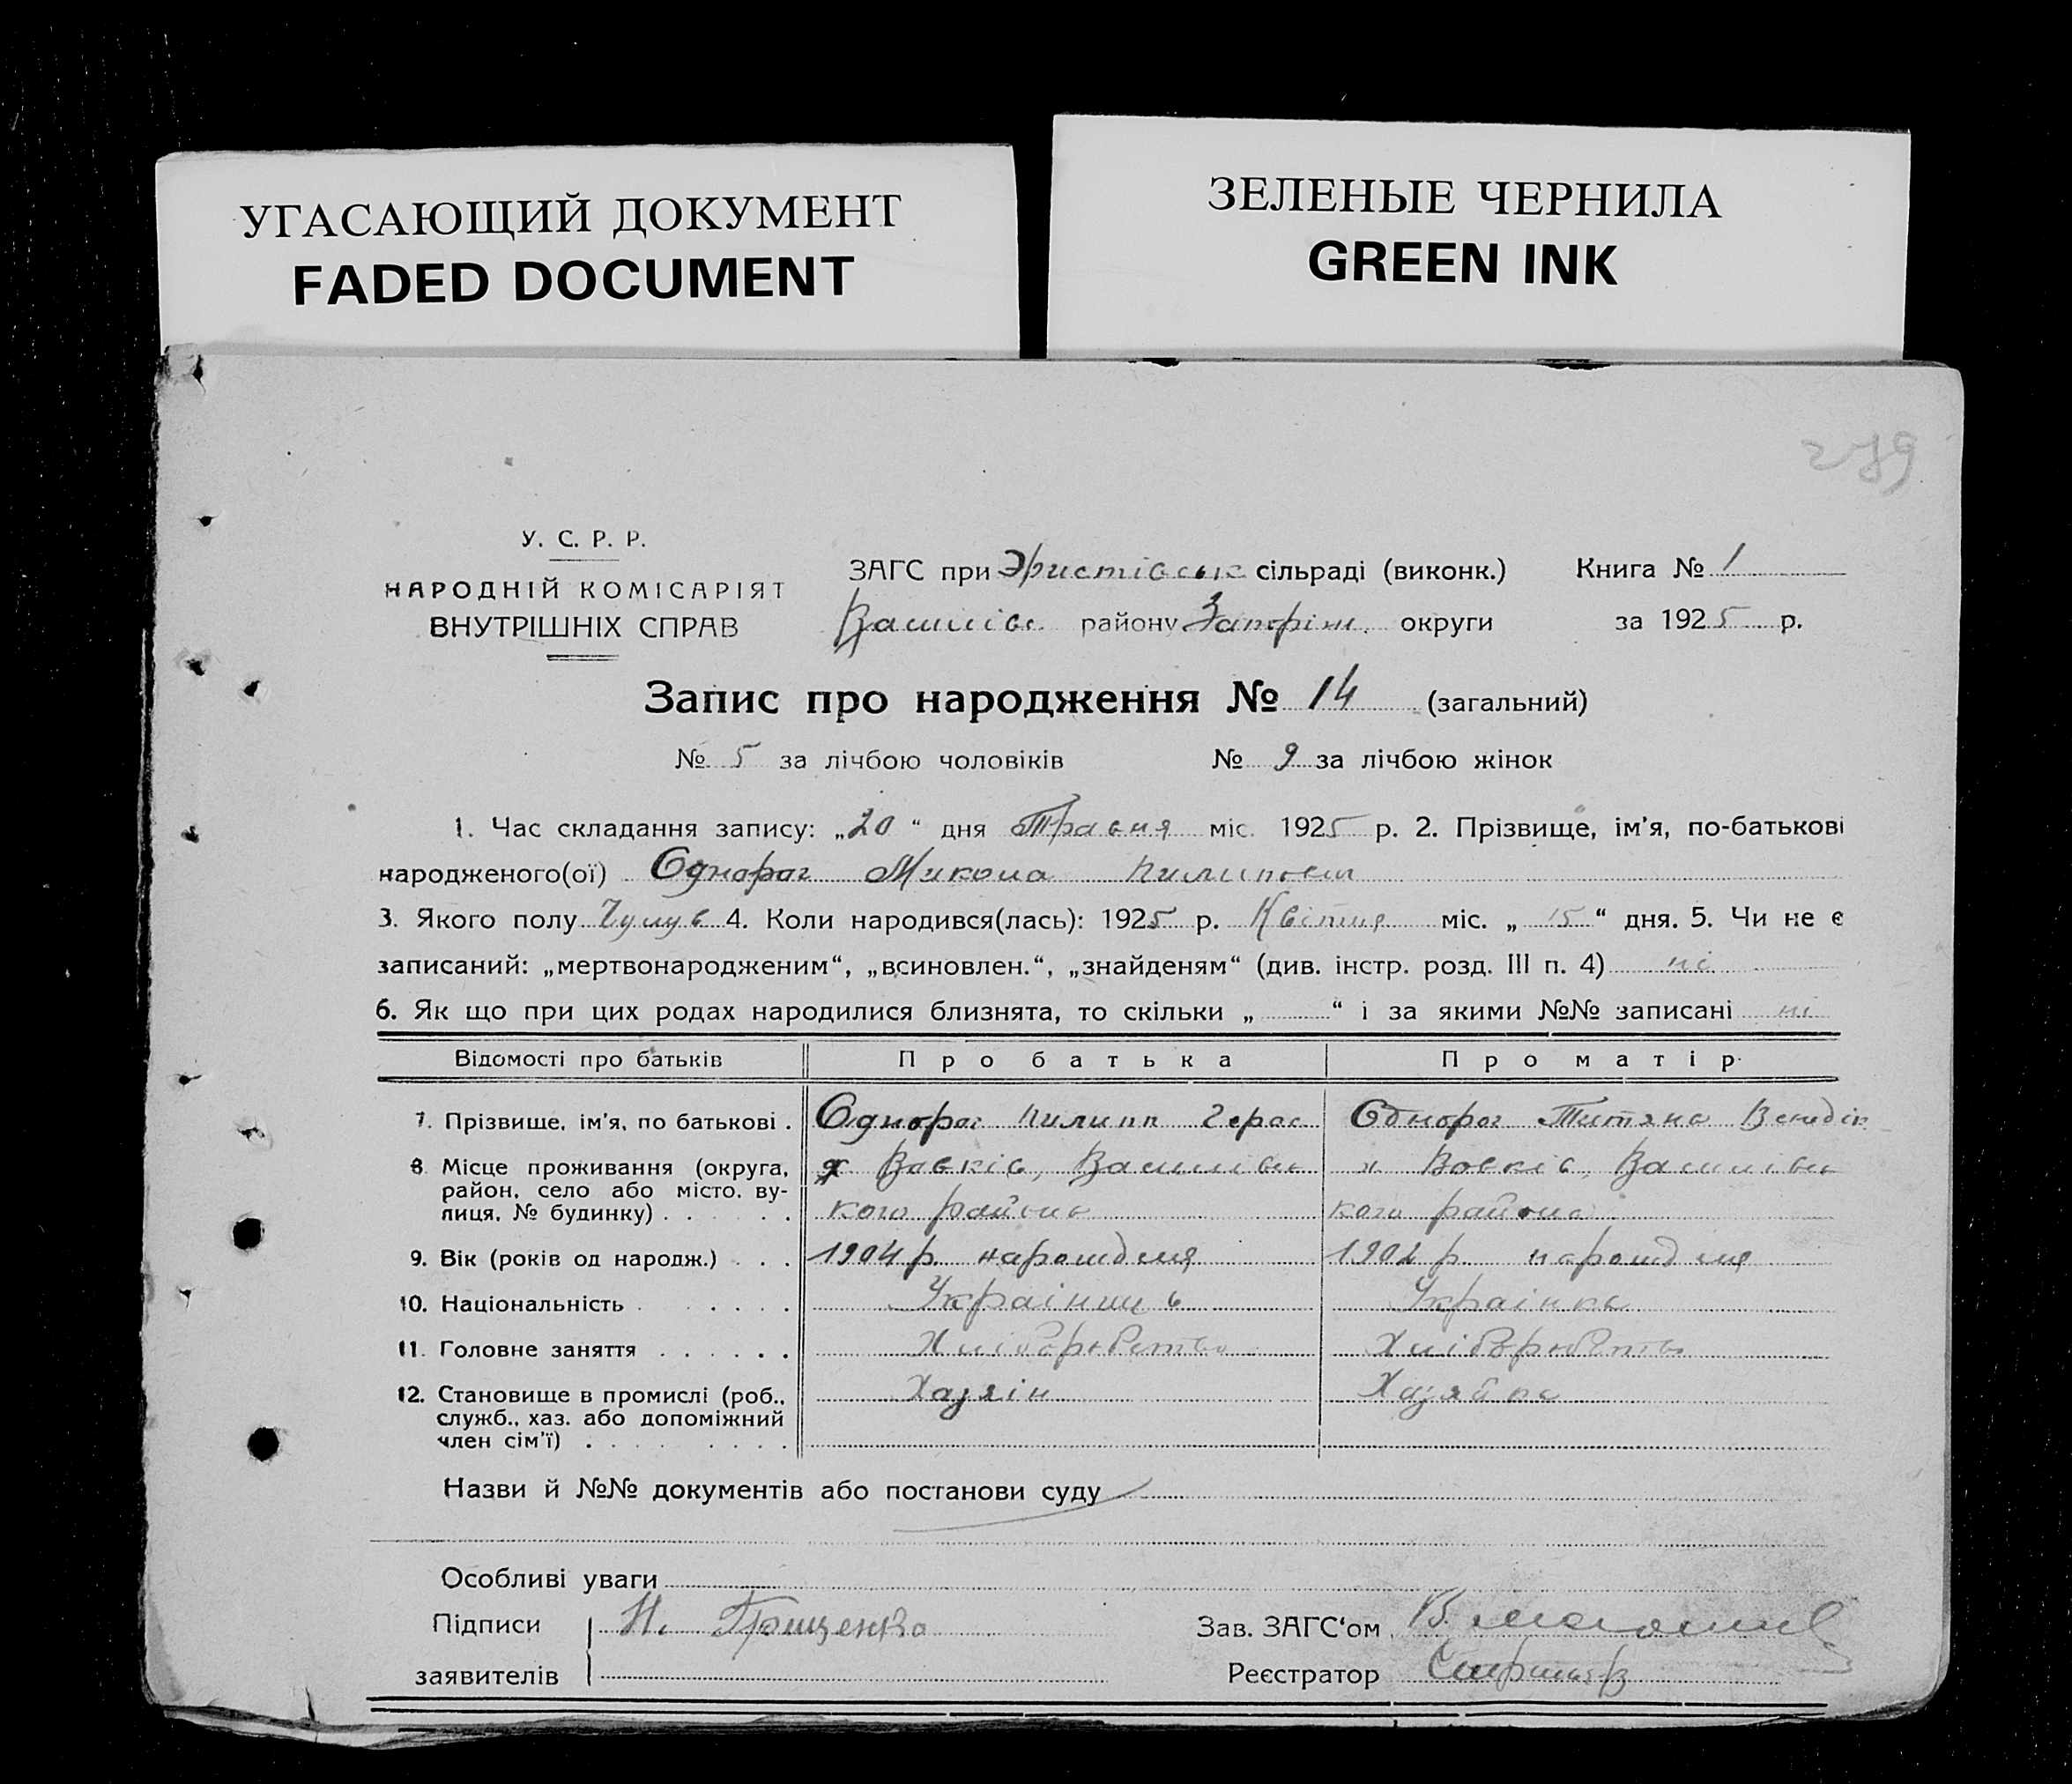 УГАСАЮЩИЙ ДОКУМЕНТ
FADED DOCUMENT
ЗЕЛЕНЫЕ ЧЕРНИЛА
GREEN INK
279
У. С. Р. Р.
НАРОДНІЙ КОМІСАРІЯТ
ВНУТРІШНІХ СПРАВ
ЗАГС при Эристівськ сільраді (виконк.) Книга № 1
району Запоріж. округи за 1925 р.
Запис про народження № 14 (загальний)
№ 5 за лічбою чоловіків № 9 за лічбою жінок
1. Час складання запису: „20“ дня Травня міс. 1925 р. 2. Прізвище, ім’я, по-батькові
народженого(ої) Однорог Микола Пилипов
3. Якого полу 4. Коли народився(лась): 1925 р. Квітня міс. „15“ дня. 5. Чи не є
записаний: „мертвонародженим“, „всиновлен.“, „знайденям“ (див. інстр. розд. III п. 4) ні
6. Як що при цих родах народилися близнята, то скільки „ “ і за якими №№ записані ні
Відомості про батьків Про батька Про матір
7. Прізвище, ім’я, по батькові . Однорог Пилип Герас Однорог Титяна Венедік
8 Місце проживання (округа, х Вовків, Васильівсь х Вовків, Васильівсь
район, село або місто, ву-
лиця, № будинку) . . . . . кого района кого района
9. Вік (років од народж.) . . . 1904 р. нарождия 1902 р. нарождия
10. Національність . . . . . Українець Українка
11. Головне заняття . . . . . . Хліборобство Хліборобство
12. Становище в промислі (роб., Хазяін Хазяйка
служб., хаз. або допоміжний
член сім’ї) . . . . . . . .
Назви й №№ документів або постанови суду
Особливі уваги
Підписи Н. Грищенко Зав. ЗАГС‘ом
заявителів Реєстратор